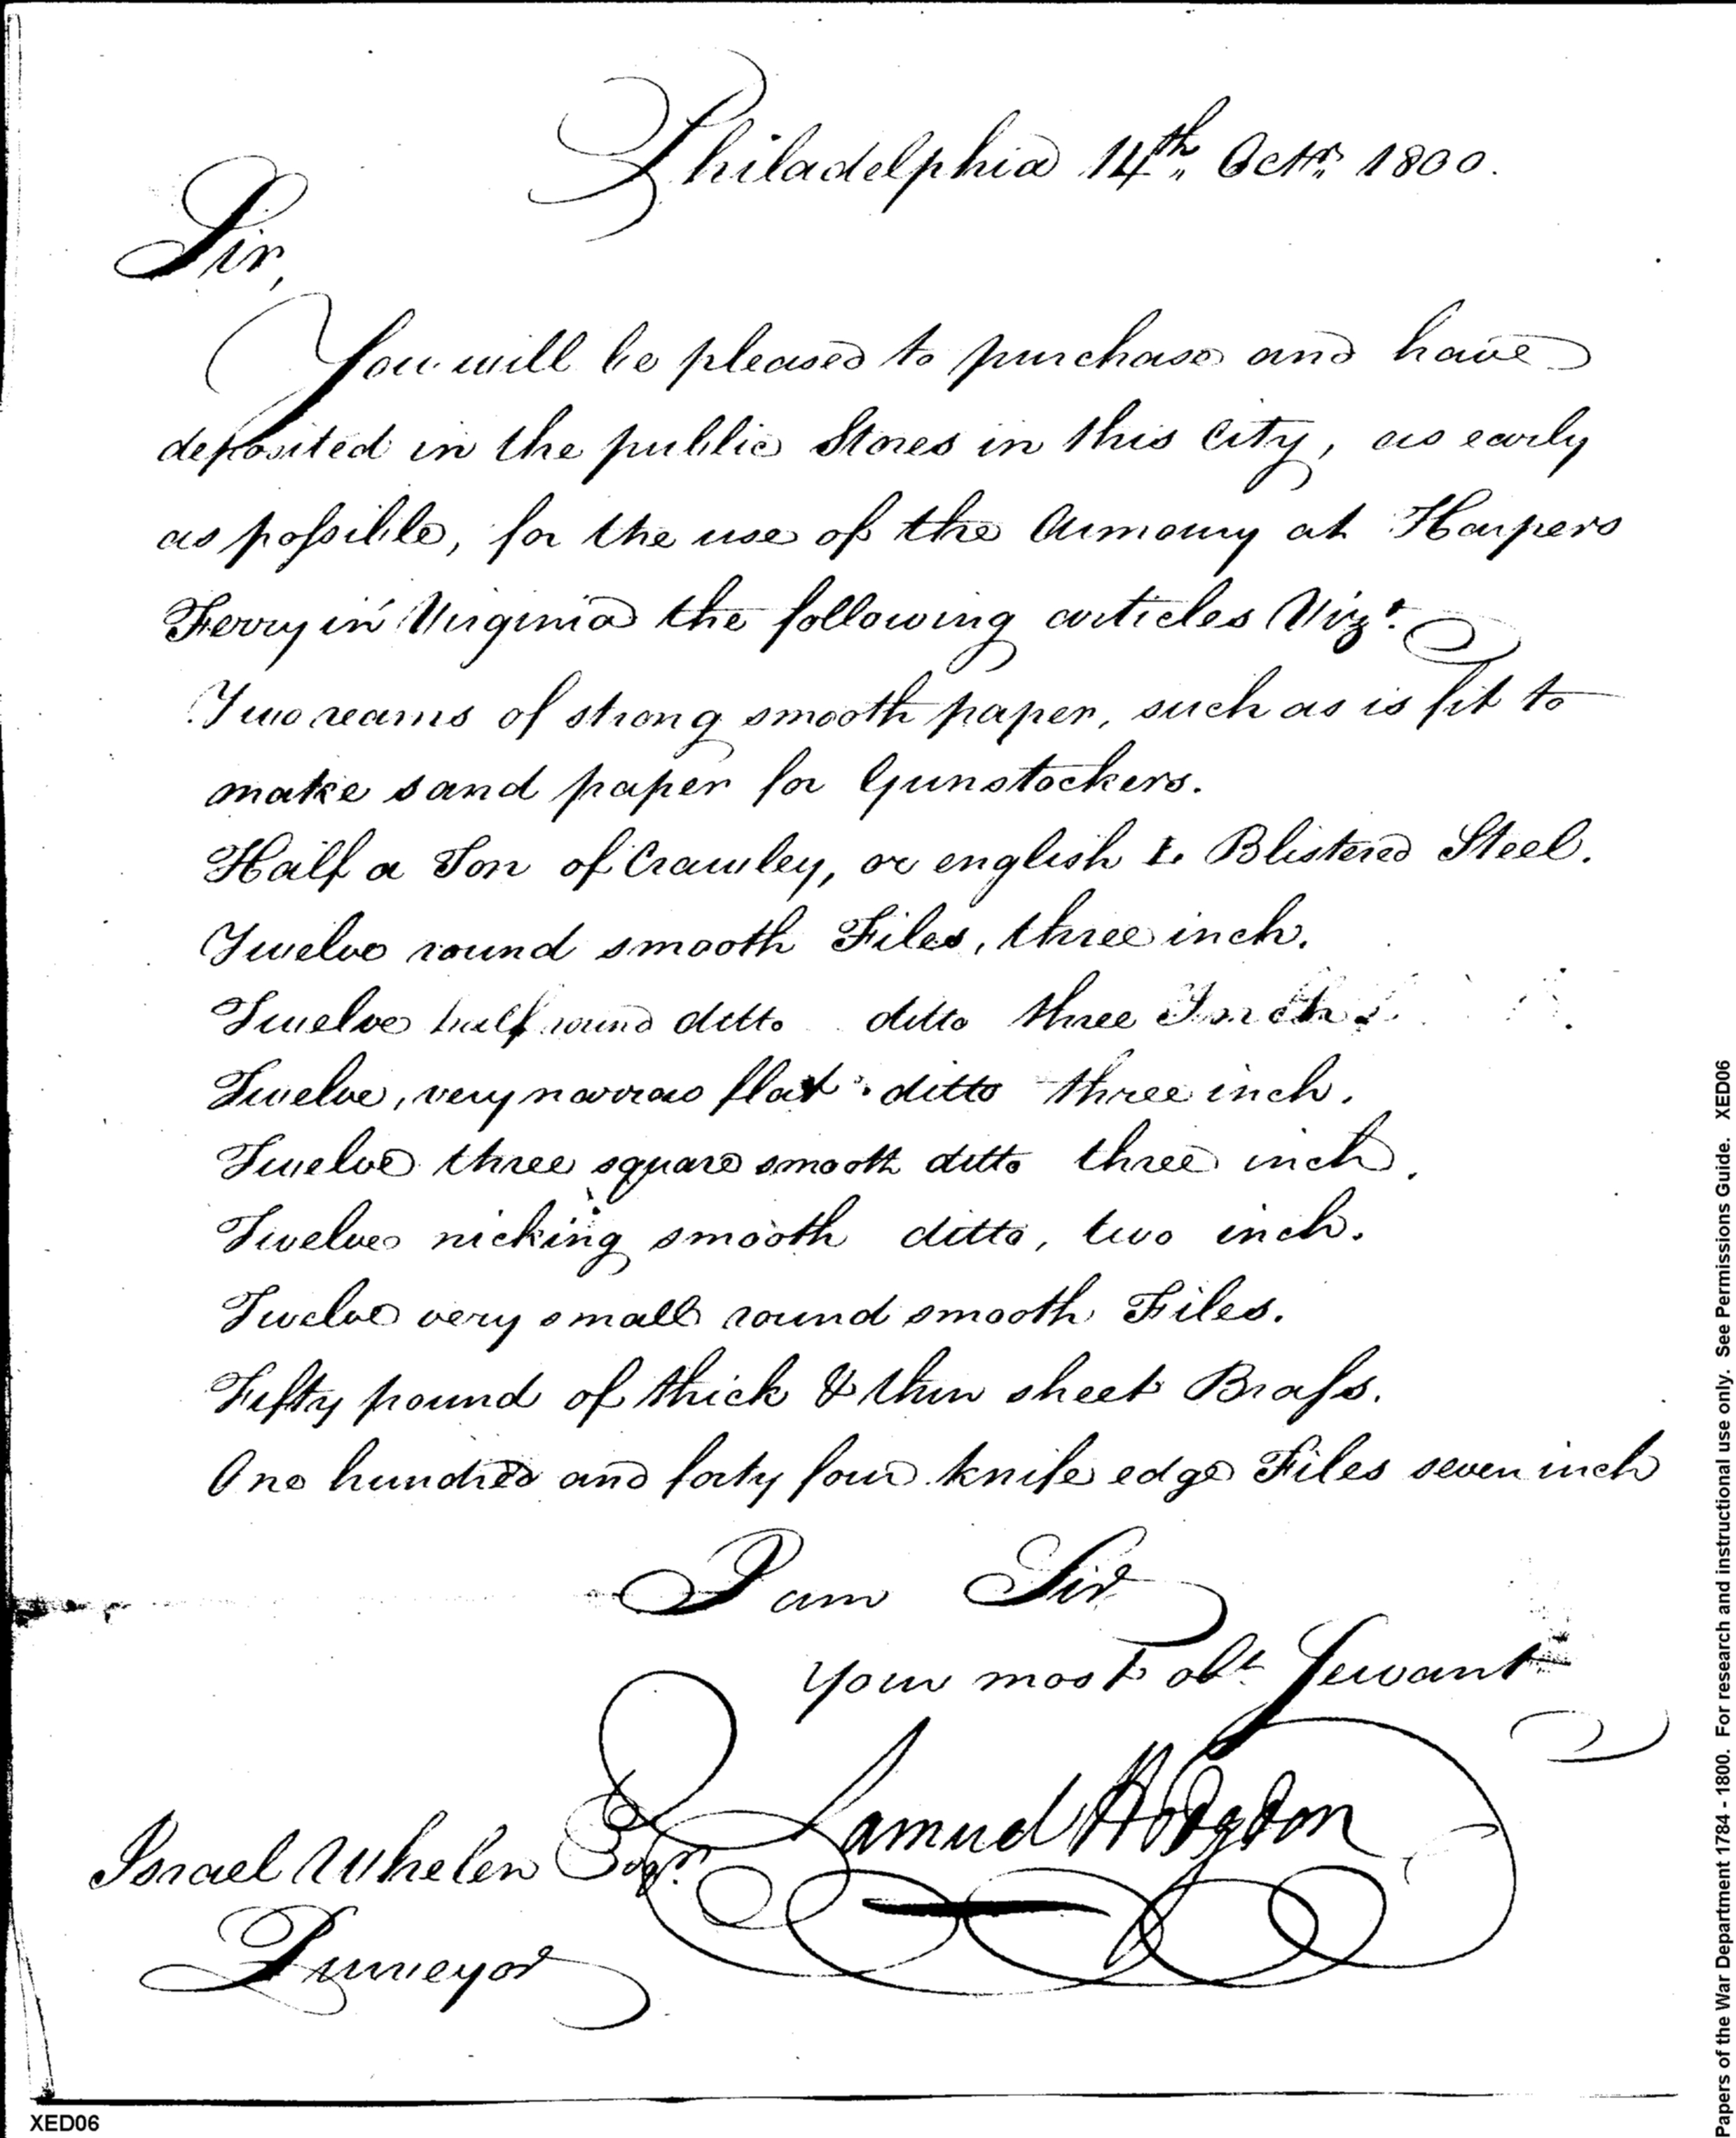 Philadelphia 14th,, Octr,, 1800.
Sir,
You will be pleased to purchase and have
deposited in the public Stores in this City, as early
as possible, for the use of the Armoury at Harpers
Ferry in Virginia the following articles Vizt.
Two reams of strong smooth paper, such as is fit to
make sand paper for Gunstockers.
Half a Ton of Crawley, or english L. Blistered Steel.
Twelve round smooth Files, three inch.
Twelve half round ditto ditto three Inch.
Twelve, very narrow flat ditto three inch.
Twelve three square smooth ditto three inch.
Twelve nicking smooth ditto, two inch.
Twelve very small round smooth Files.
Fifty pound of thick & thin sheet Brass.
One hundred and forty four knife edge Files seven inch
I am Sir
Your most obt. Servant
Samuel Hodgdon
Israel Whelen Esqr.
Purveyor
XED06
Papers of the War Department 1784 - 1800. For research and instructional use only. See Permissions Guide. XED06